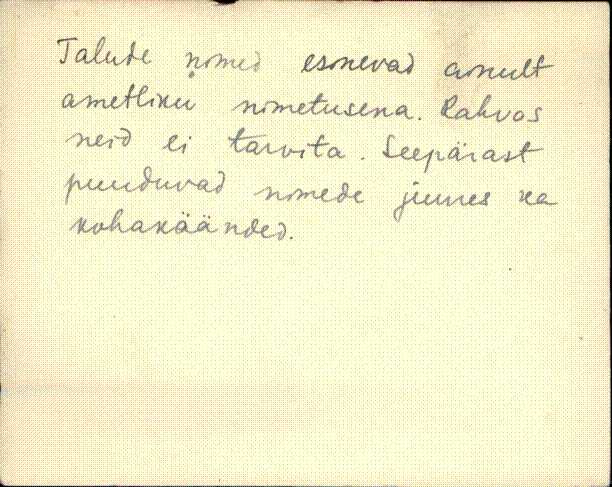 Talude nimed esinevad ainult
ametliku nimetusena. Rahvas
neid ei tarvita. Seepärast
puuduvad nimede juures ka
kohakäänded.